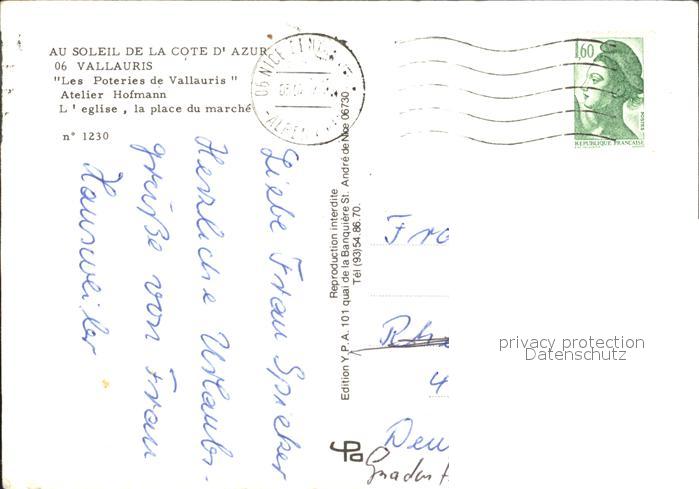 AU SOLEIL DE LA COTE D' AZUR
06 VALLAURIS
"Les Poteries de Vallauris"
Atelier Hofmann
L'eglise, la place du marché
n° 1230
Liebe Frau Spieker
Herzliche Urlaubs-
grüße von Frau
Hausweiler
Edition Y.P.A. 101 quai de la Banquière St. André de Nice 06730
Reproduction interdite
Tél (93)54.86.70.
06 NICE
1,60
POSTES
REPUBLIQUE FRANÇAISE
Fra
Rhe
4
Deu
privacy protection
Datenschutz